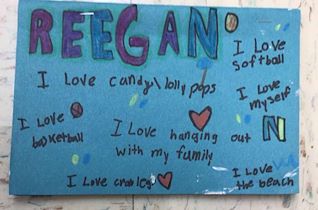 REEGAN
I Love
softball
I Love candy\lolly pops
I Love
myself
I Love
basketball
I Love hanging out
with my family
N
I Love
the beach